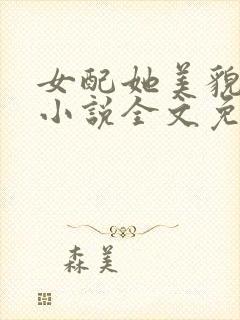 女配她美貌
小说全文免
森美